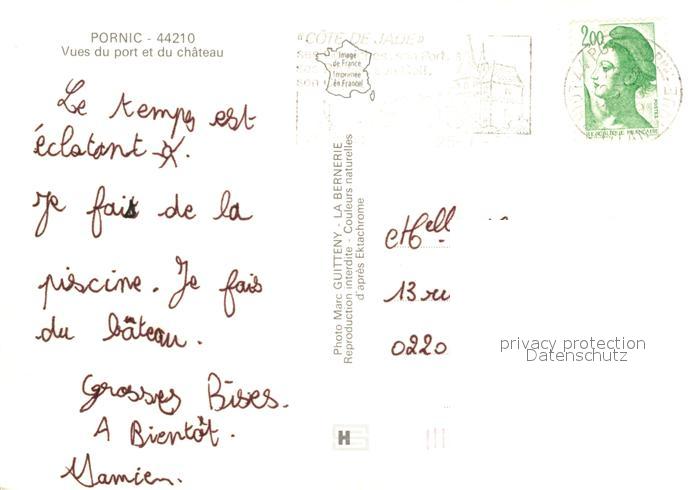 PORNIC - 44210
Vues du port et du château
« CÔTE DE JADE »
Image
de France
Imprimée
en France
2,00
POSTES
RÉPUBLIQUE FRANÇAISE
Le temps est
éclatant
Je fais de la
piscine. Je fais
du bâteau.
Grosses Bises.
A Bientôt.
Damien.
Photo Marc GUITTENY - LA BERNERIE
Reproduction interdite - Couleurs naturelles
d'après Ektachrome
Mell
13 ru
0220
privacy protection
Datenschutz
H